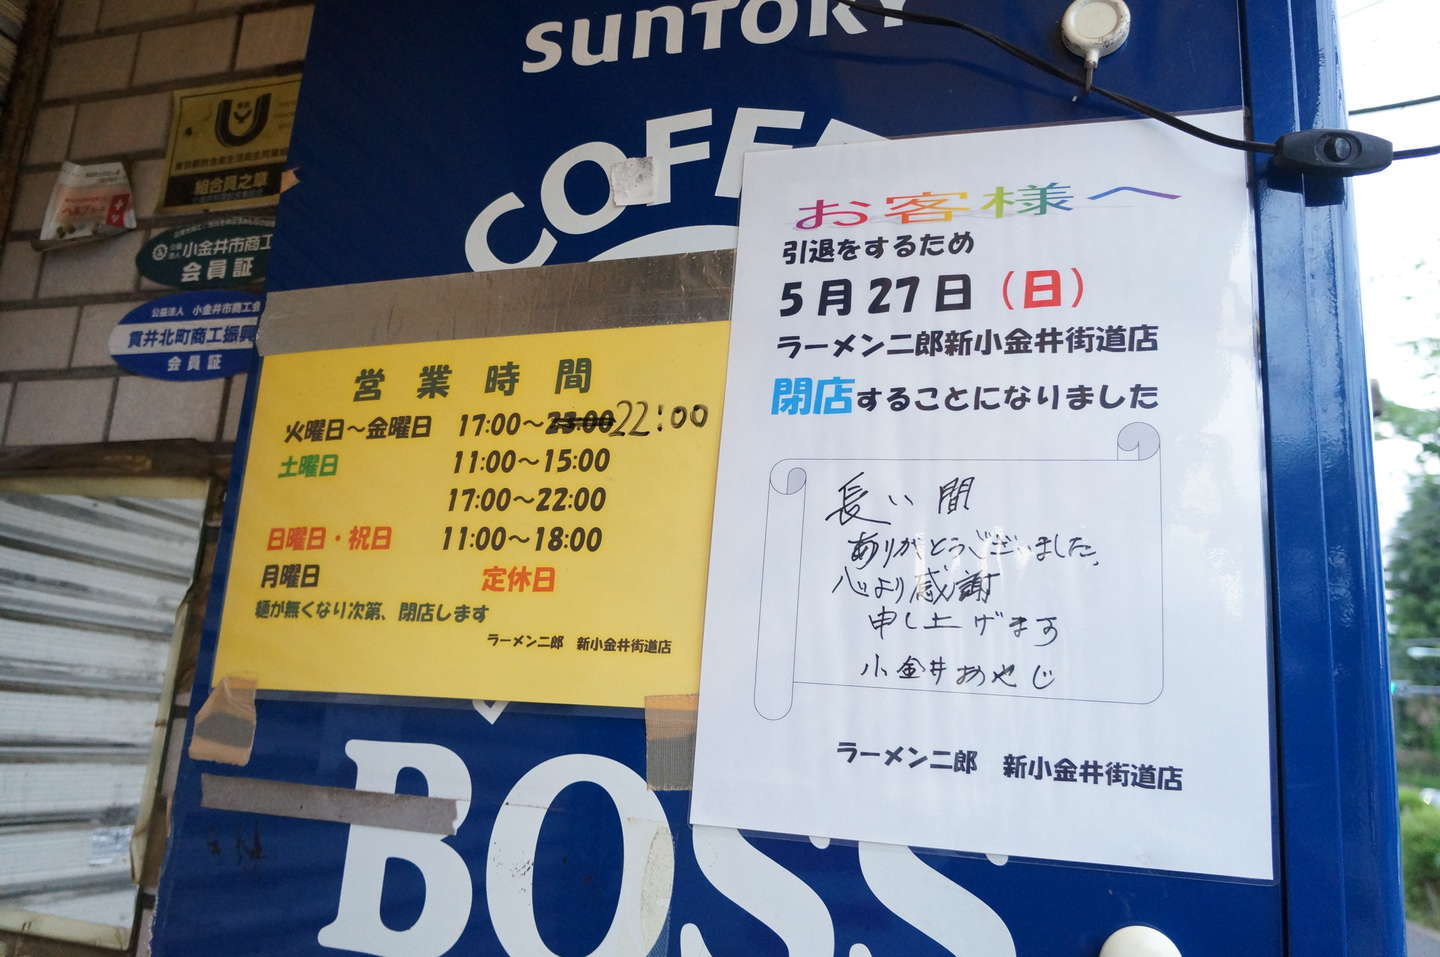 SUNTORY
COFFE
組合員之章
小金井市商工
会員証
公益法人 小金井市商工会
貫井北町商工振興
会員証
営業時間
火曜日～金曜日 17:00～23:00 22:00
土曜日 11:00～15:00
17:00～22:00
日曜日・祝日 11:00～18:00
月曜日 定休日
麺が無くなり次第、閉店します
ラーメン二郎 新小金井街道店
お客様へ
引退をするため
5月27日（日）
ラーメン二郎新小金井街道店
閉店することになりました
長い間
ありがとうございました、
心より感謝
申し上げます
小金井おやじ
ラーメン二郎 新小金井街道店
BOSS